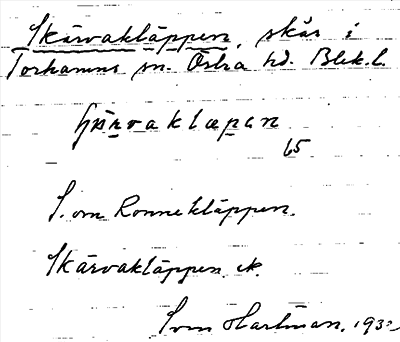 Skärvakläppen, skär i
Torhamns sn. Östra hd. Blek. l.
65
S. om Ronnekläppen.
Skärvakläppen. ek.
Sven Hartman. 193